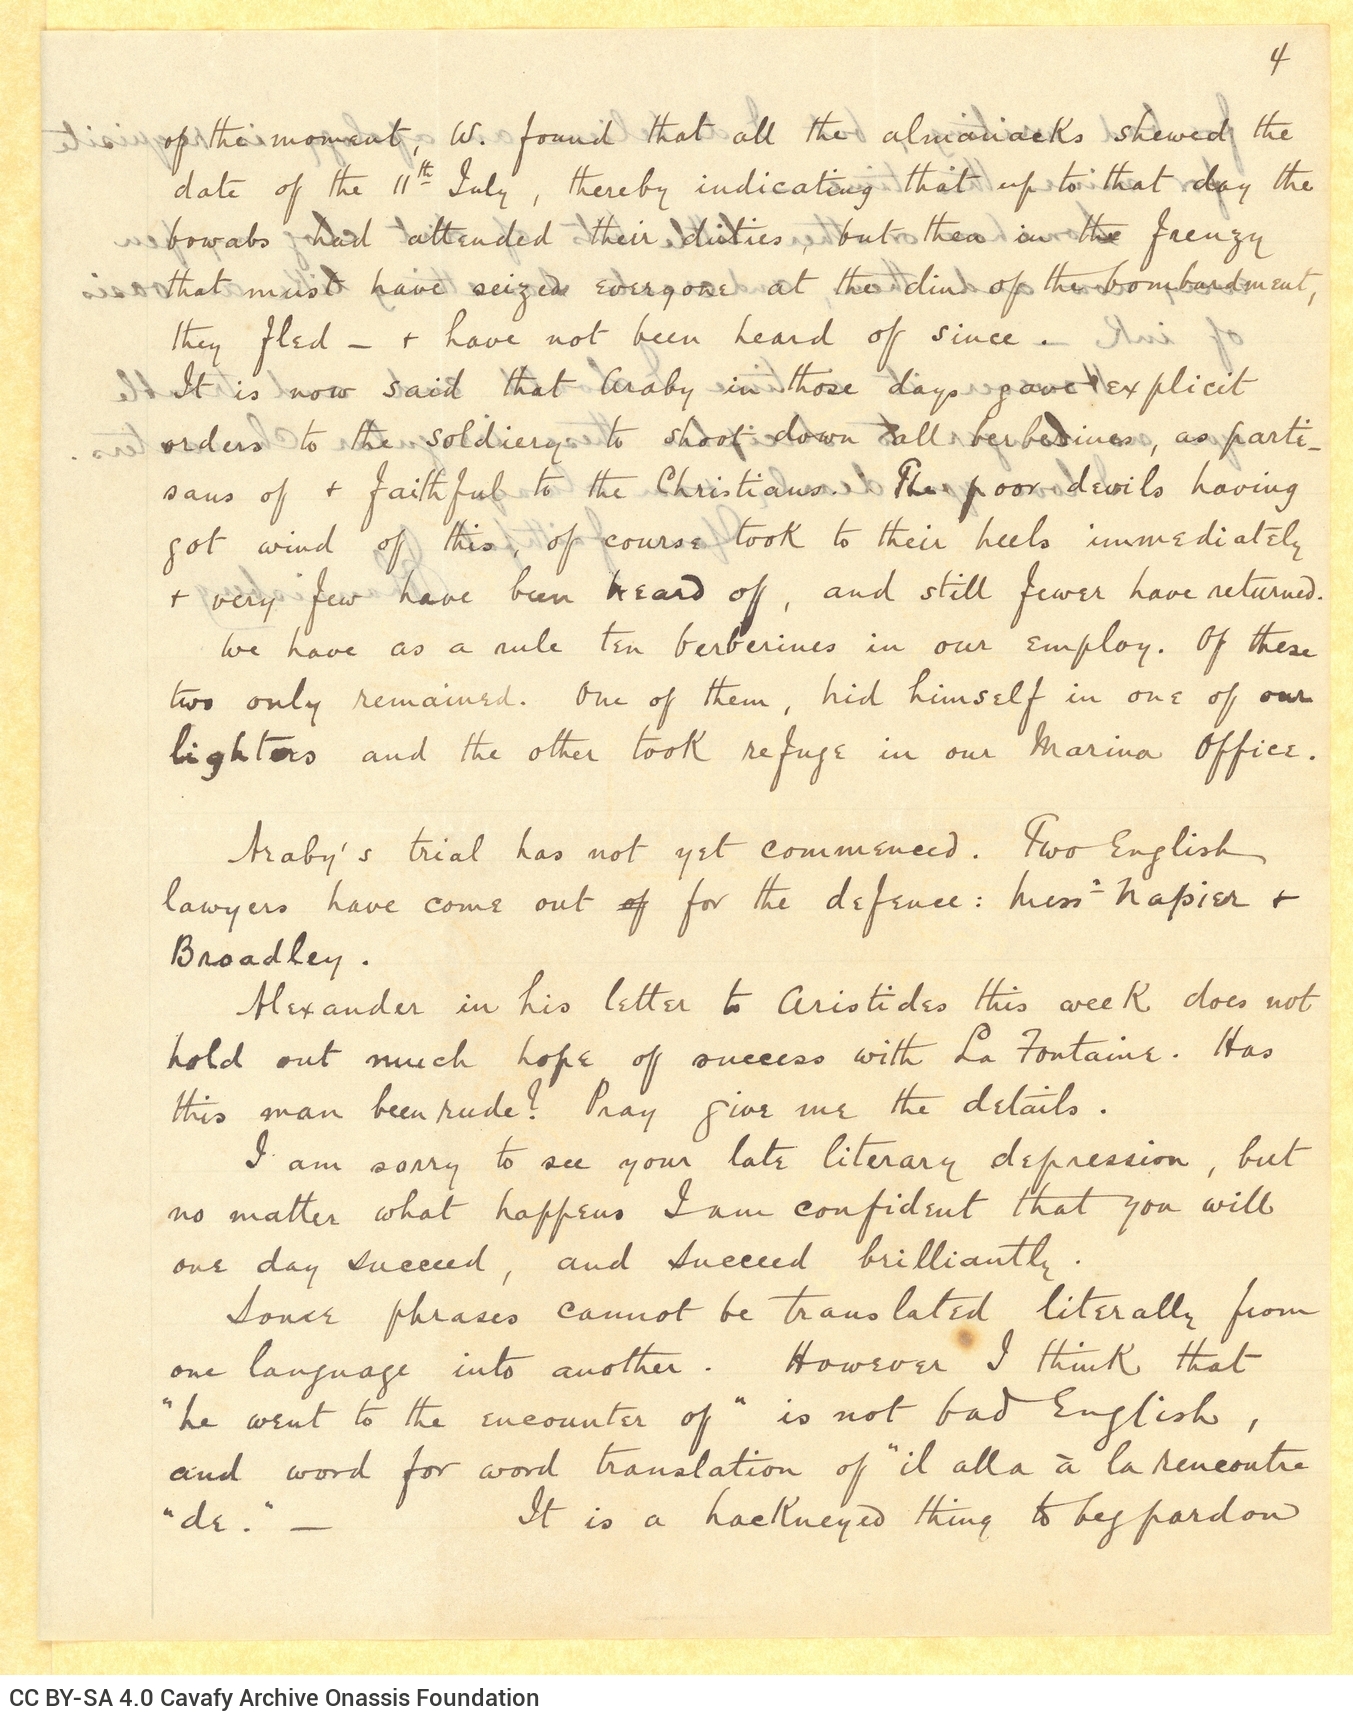 4
of the moment, W. found that all the almanacks shewed the
date of the 11th July, thereby indicating that up to that day the
bowabs had attended their duties, but then in the frenzy
that must have seized everyone at the din of the bombardment,
they fled — + have not been heard of since.
It is now said that Araby in those days gave explicit
orders to the soldiery to shoot down all berberines, as parti-
sans of + faithful to the Christians. The poor devils having
got wind of this, of course took to their heels immediately
+ very few have been heard of, and still fewer have returned.
We have as a rule ten berberines in our employ. Of these
two only remained. One of them, hid himself in one of our
lighters and the other took refuge in our Marina Office.
Araby's trial has not yet commenced. Two English
lawyers have come out of for the defence: Messrs Napier +
Broadley.
Alexander in his letter to Aristides this week does not
hold out much hope of success with La Fontaine. Has
this man been rude? Pray give me the details.
I am sorry to see your late literary depression, but
no matter what happens I am confident that you will
one day succeed, and succeed brilliantly.
Some phrases cannot be translated literally from
one language into another. However I think that
"he went to the encounter of" is not bad English,
and word for word translation of "il alla à la rencontre
"de." — It is a hackneyed thing to beg pardon
CC BY-SA 4.0 Cavafy Archive Onassis Foundation